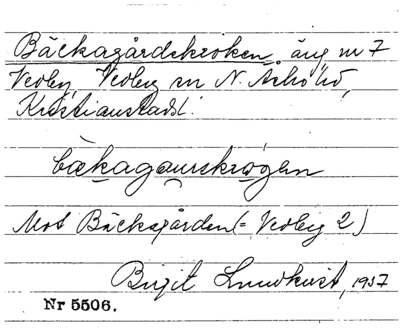 Bäckagårdskroken, äng nr 7
Vedby, Vedby sn N. Åsbo hd,
Kristianstads l.
bækagamskrogen
Mot Bäckagården (= Vedby 2)
Birgit Lundkvist, 1937
Nr 5506.